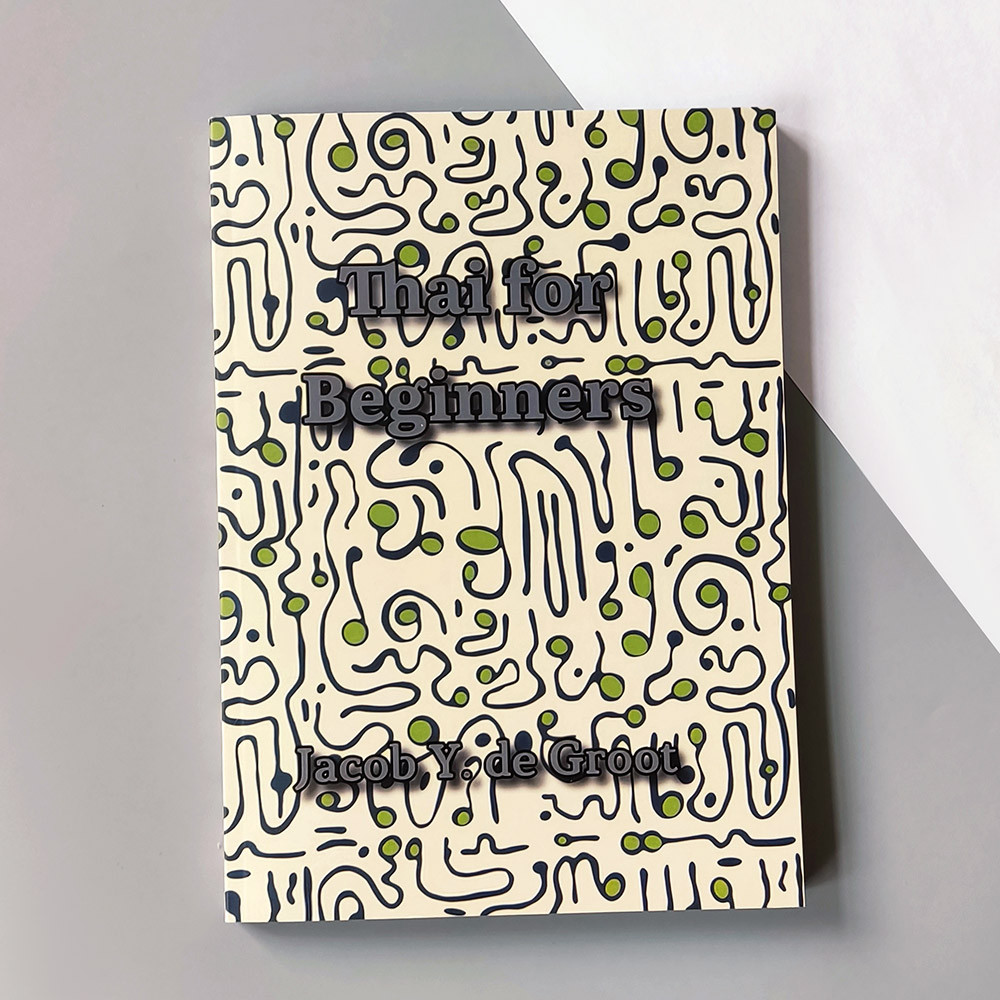 Thai for
Beginners
Jacob Y. de Groot